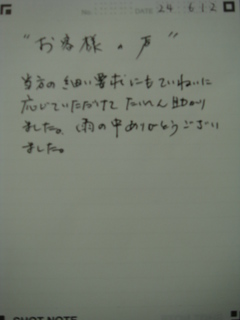 NO. DATE 24・6・12
"お客様の声"
当方の細い要求にもていねいに
応じていただけて たいへん助かり
ました。雨の中ありがとうござい
ました。
SHOT NOTE